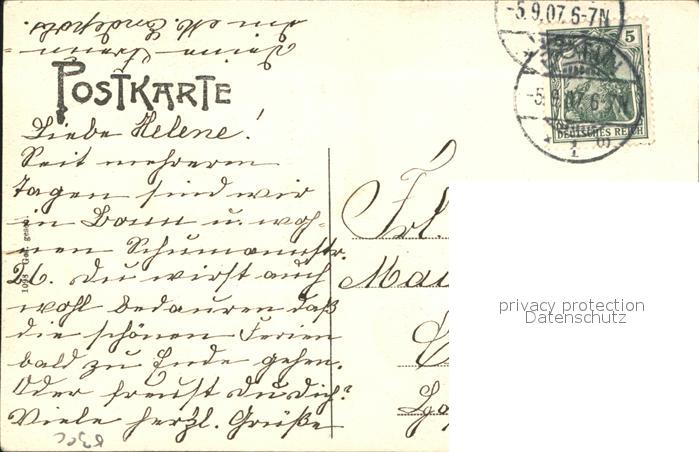 POSTKARTE
Liebe Helene!
Seit mehreren
Tagen sind wir
in Bonn u. woh-
nen Schumannstr.
26. Du wirst auch
wohl bedauren daß
die schönen Ferien
bald zu Ende gehen.
Oder freust du dich?
Viele herzl. Grüße
Deine Freun-
din M.
1093 Ges. gesch.
-5.9.07.6-7N
-5.9.07.6-7N
5
DEUTSCHES REICH
Frl.
privacy protection
Datenschutz